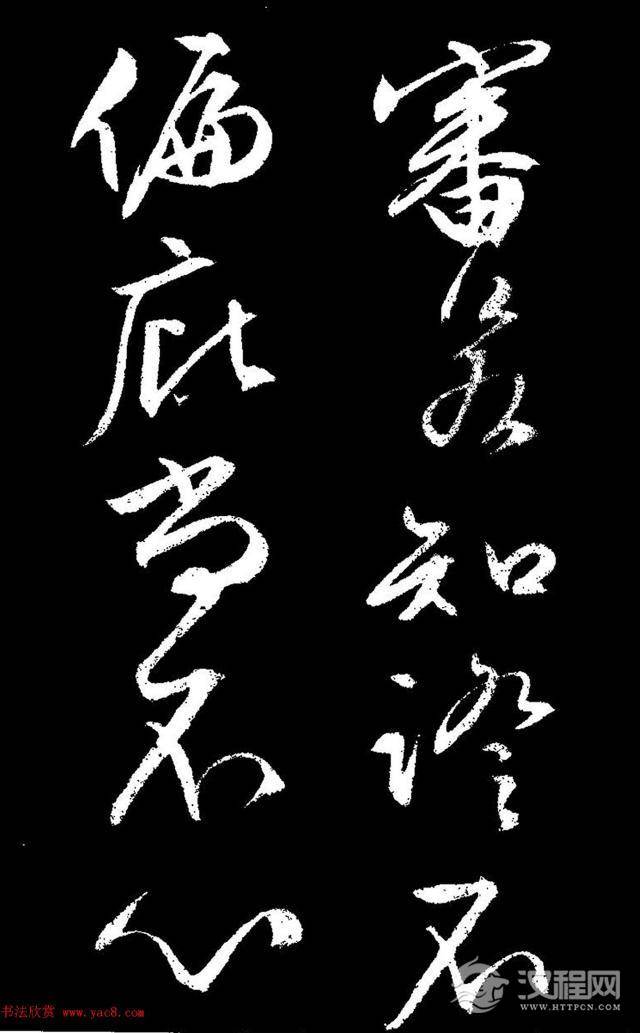 審若知證不
偏庇當不心
书法欣赏 www.yac8.com
汉程网
WWW.HTTPCN.COM